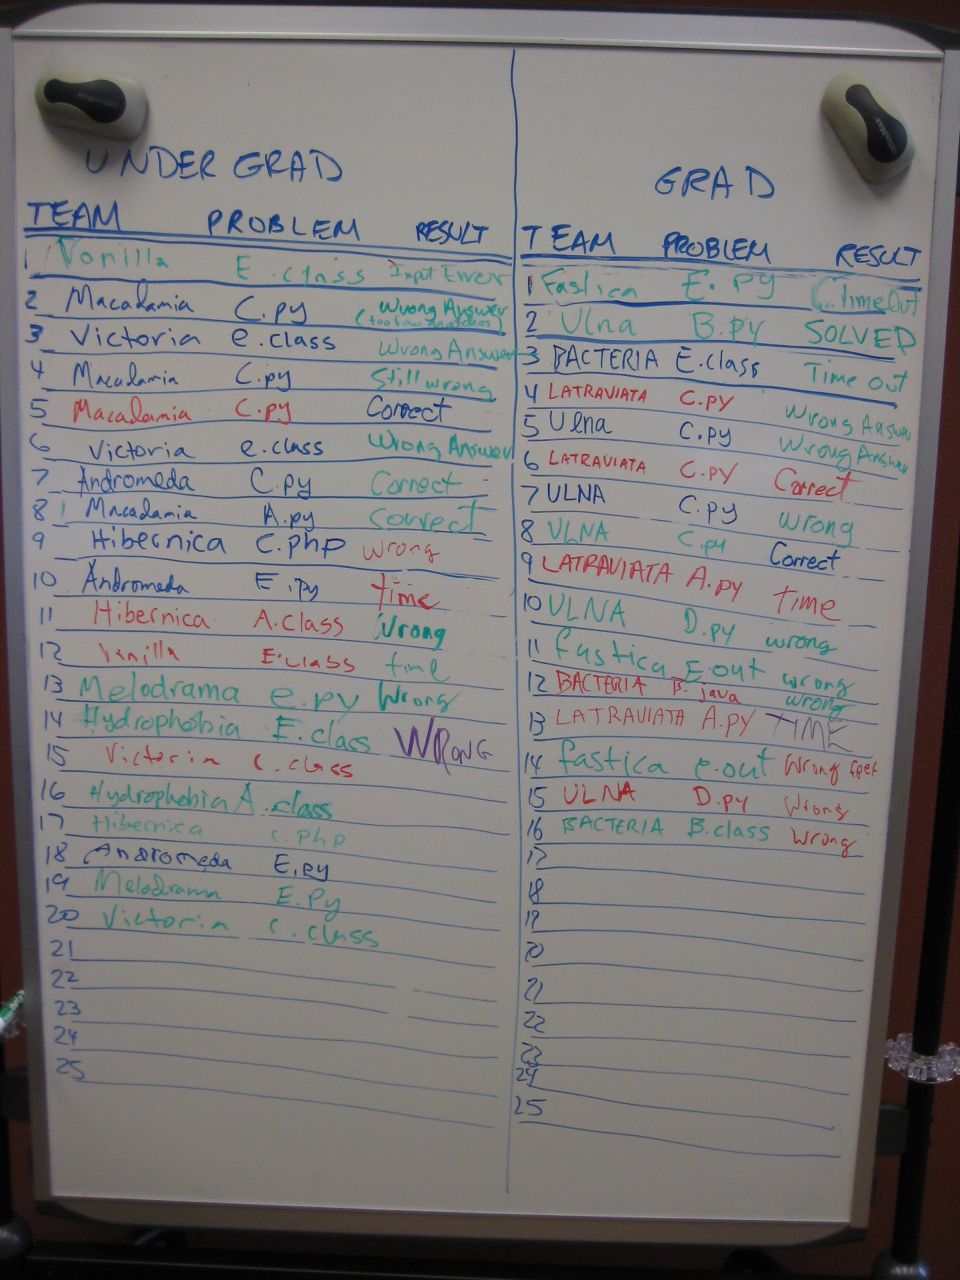 UNDER GRAD
TEAM PROBLEM RESULT
1 Vanilla E.class Input Error
2 Macadamia C.py Wrong Answer
3 Victoria e.class Wrong Answer
4 Macadamia C.py Still wrong
5 Macadamia C.py Correct
6 Victoria e.class Wrong Answer
7 Andromeda C.py Correct
8 Macadamia A.py Correct
9 Hibernica C.php wrong
10 Andromeda E.py time
11 Hibernica A.class Wrong
12 Vanilla E.class time
13 Melodrama e.py Wrong
14 Hydrophobia E.class WRONG
15 Victoria c.class
16 Hydrophobia A.class
17 Hibernica c.php
18 Andromeda E.py
19 Melodrama E.Py
20 Victoria c.class
21
22
23
24
25
GRAD
TEAM PROBLEM RESULT
1 Fastica E.py Time Out
2 Ulna B.py SOLVED
3 BACTERIA E.class Time out
4 LATRAVIATA C.PY Wrong Answer
5 Ulna C.py Wrong Answer
6 LATRAVIATA C.PY Correct
7 ULNA C.py wrong
8 ULNA C.py Correct
9 LATRAVIATA A.py TIME
10 ULNA D.py wrong
11 fastica E.out wrong
12 BACTERIA B.java wrong
13 LATRAVIATA A.PY TIME
14 fastica e.out Wrong
15 ULNA D.py Wrong
16 BACTERIA B.class Wrong
17
18
19
20
21
22
23
24
25